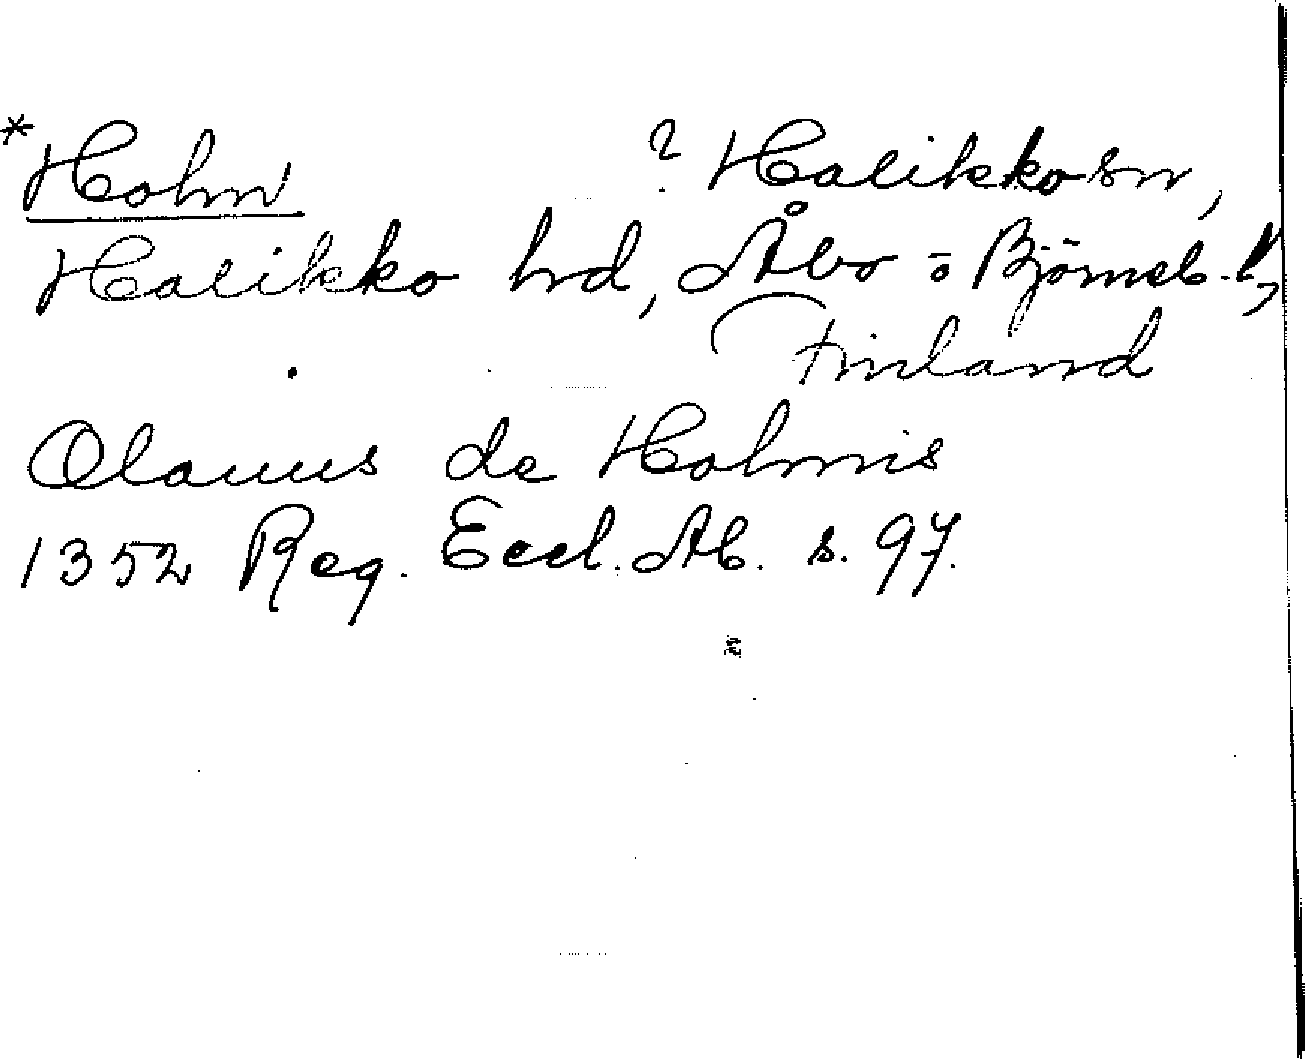 *Holm ? Halikko sn,
Halikko hd, Åbo o Björneb. l,
Finland
Olauus de Holmis
1352 Reg. Eccl. Ab. s. 97.